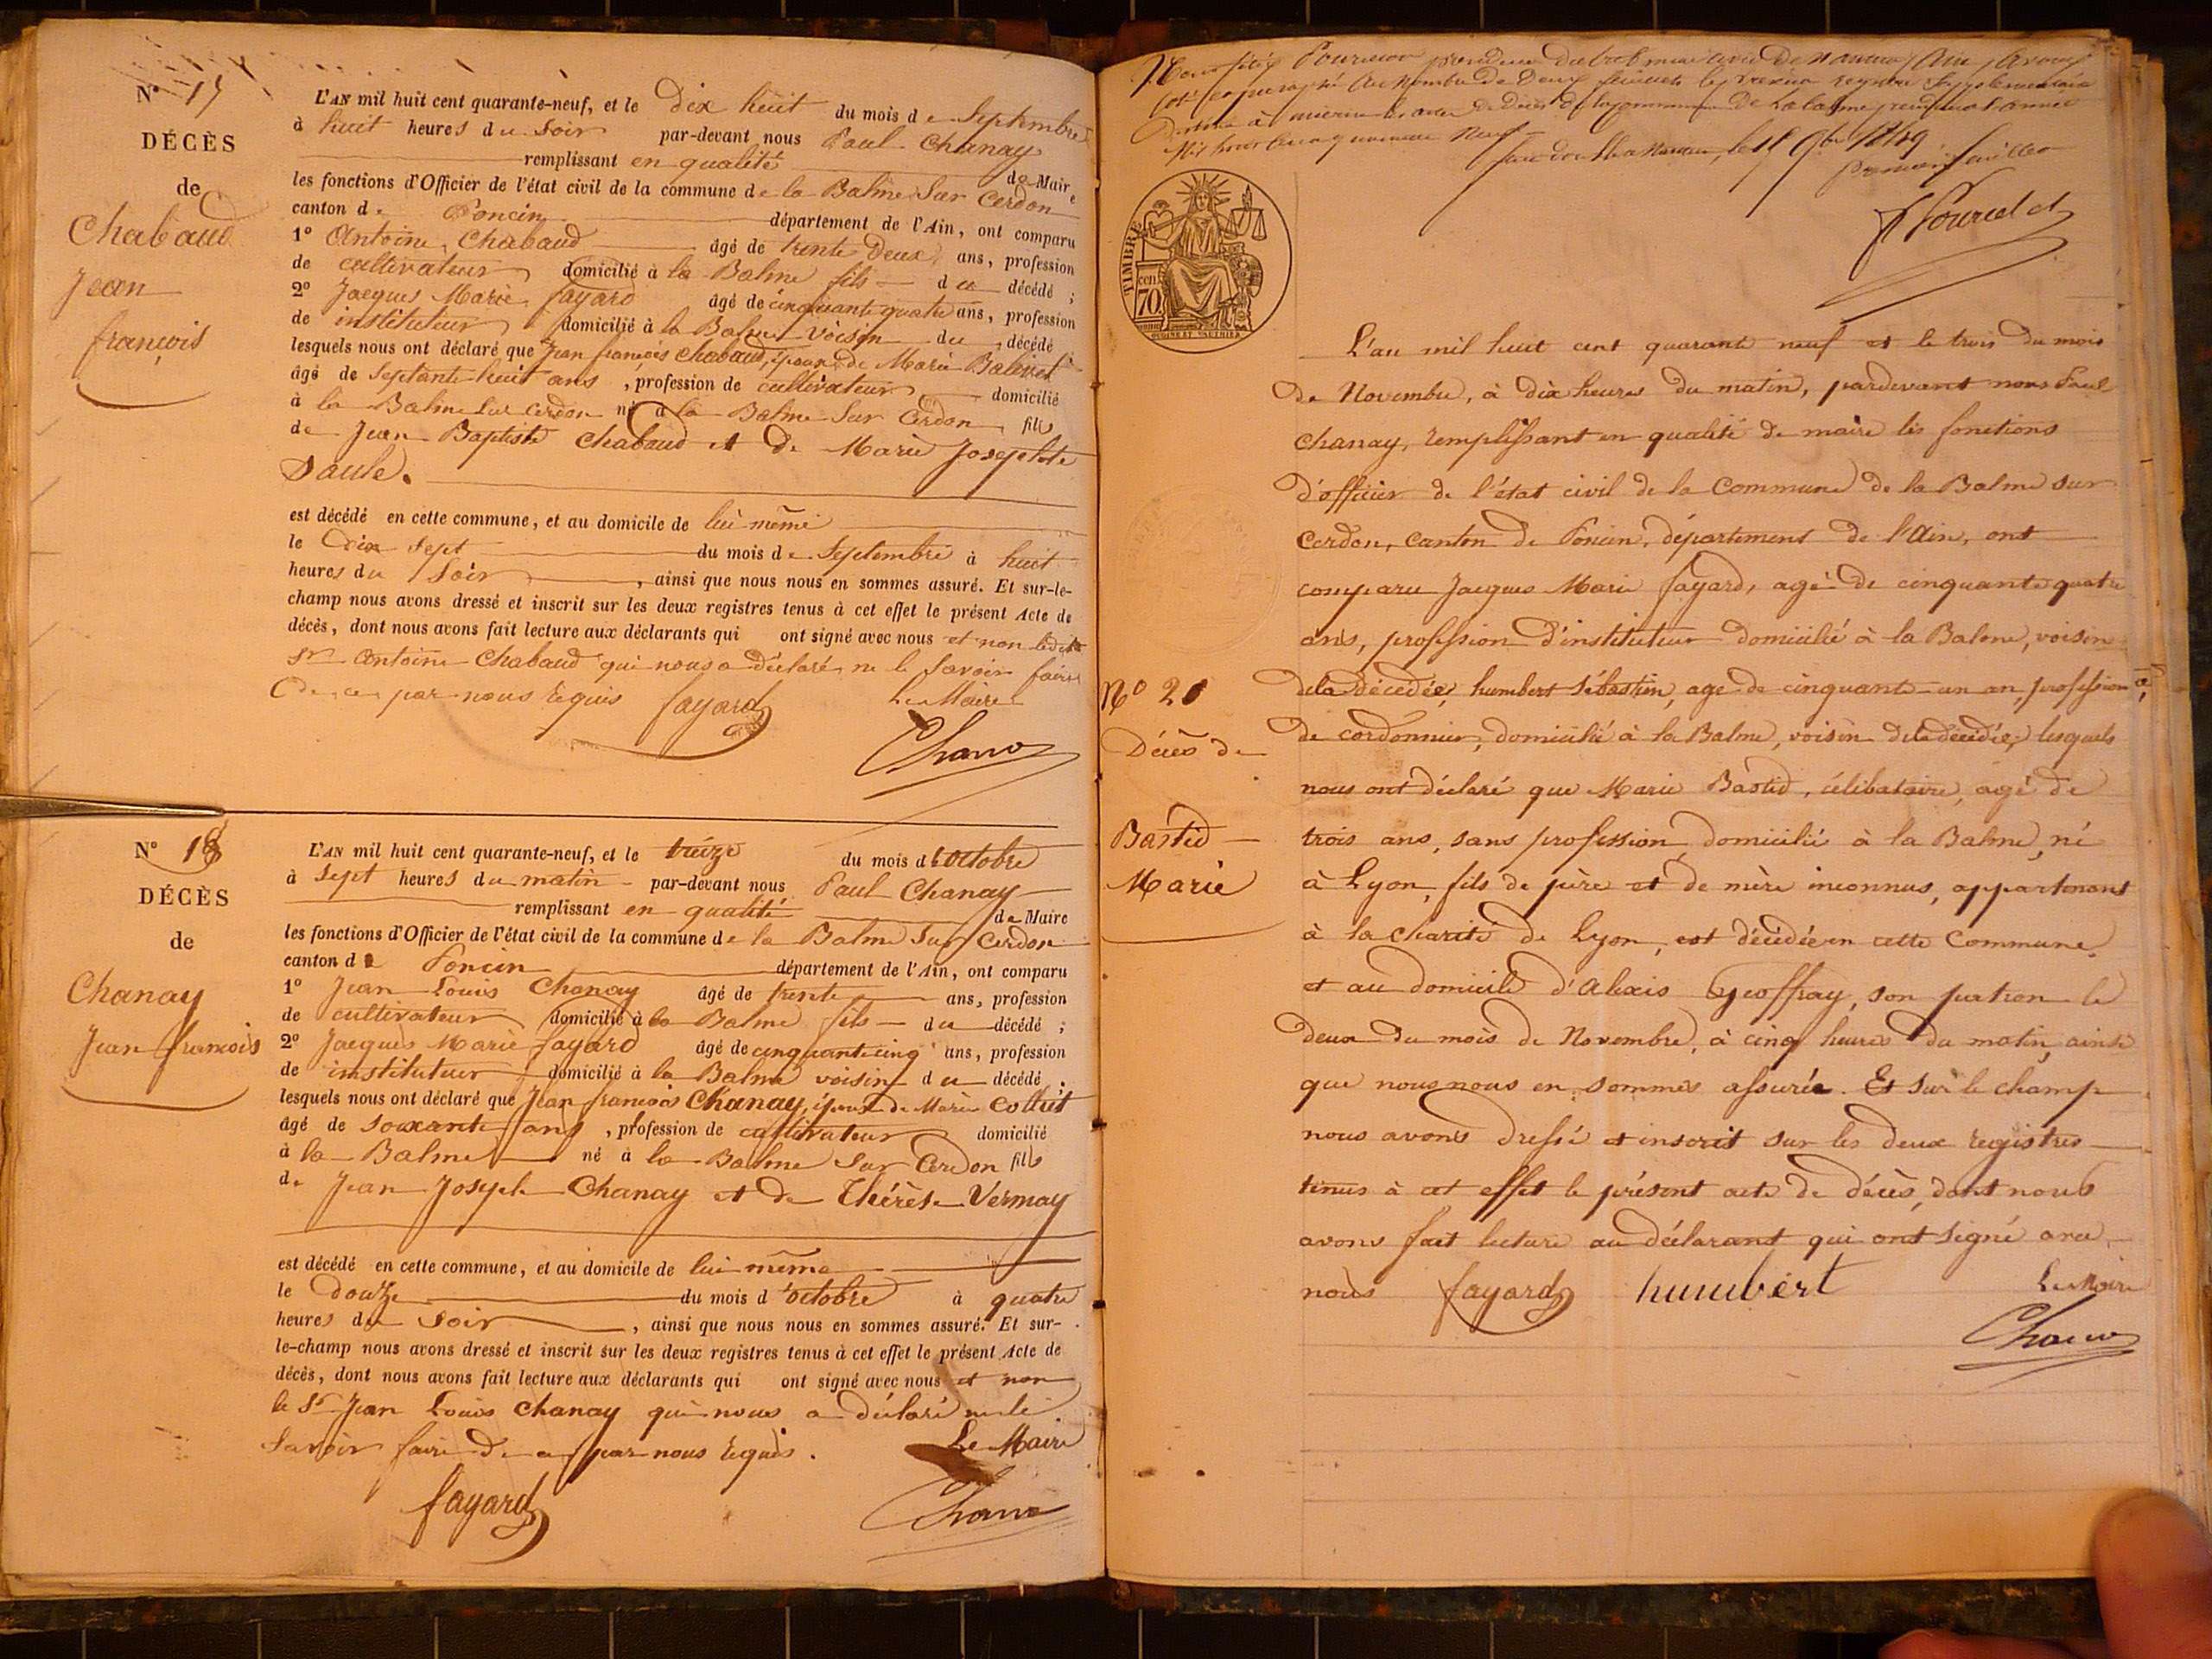 N° 17
DÉCÈS
de
Chabaud
Jean
françois
L'AN mil huit cent quarante-neuf, et le Dix huit du mois de Septembre
à huit heures du Soir par-devant nous Paul Chanay
remplissant en qualité de Maire
les fonctions d'Officier de l'état civil de la commune de la Balme Sur Cerdon
canton de Poncin département de l'Ain, ont comparu
1° Antoine Chabaud âgé de trente Deux ans, profession
de cultivateur domicilié à la Balme fils du décédé ;
2° Jacques Marie fayard âgé de cinquante quatre ans, profession
de instituteur domicilié à la Balme voisin du décédé
lesquels nous ont déclaré que Jean françois Chabaud, époux de Marie
âgé de Septante huit ans, profession de cultivateur domicilié
à la Balme Sur Cerdon né à la Balme Sur Cerdon fils
de Jean Baptiste Chabaud et de Marie Josephte
Saule.
est décédé en cette commune, et au domicile de lui même
le Dix Sept du mois de Septembre à huit
heures du Soir, ainsi que nous nous en sommes assuré. Et sur-le-
champ nous avons dressé et inscrit sur les deux registres tenus à cet effet le présent Acte de
décès, dont nous avons fait lecture aux déclarants qui ont signé avec nous et non ledit
Sr Antoine Chabaud qui nous a déclaré ne le Savoir faire
De ce par nous requis fayard Le Maire
Chanay
N° 18
DÉCÈS
de
Chanay
Jean françois
L'AN mil huit cent quarante-neuf, et le treize du mois d'octobre
à Sept heures du matin par-devant nous Paul Chanay
remplissant en qualité de Maire
les fonctions d'Officier de l'état civil de la commune de la Balme Sur Cerdon
canton de Poncin département de l'Ain, ont comparu
1° Jean Louis Chanay âgé de trente ans, profession
de cultivateur domicilié à la Balme fils du décédé ;
2° Jacques Marie fayard âgé de cinquante cinq ans, profession
de instituteur domicilié à la Balme voisin du décédé ;
lesquels nous ont déclaré que Jean françois Chanay, époux de Marie Collet
âgé de Soixante ans, profession de cultivateur domicilié
à la Balme né à la Balme Sur Cerdon fils
de Jean Joseph Chanay et de Thérèse Vernay
est décédé en cette commune, et au domicile de lui même
le Douze du mois d'octobre à quatre
heures du Soir, ainsi que nous nous en sommes assuré. Et sur-
le-champ nous avons dressé et inscrit sur les deux registres tenus à cet effet le présent Acte de
décès, dont nous avons fait lecture aux déclarants qui ont signé avec nous et non
le Sr Jean Louis Chanay qui nous a déclaré ne le
Savoir faire De ce par nous requis. Le Maire
fayard Chanay
TIMBRE
70
L'an mil huit cent quarante neuf et le trois du mois
de Novembre, à dix heures du matin, pardevant nous Paul
Chanay, remplissant en qualité de maire les fonctions
d'officier de l'état civil de la Commune de la Balme sur
Cerdon, Canton de Poncin, département de l'Ain, ont
comparu Jacques Marie fayard, agé de cinquante quatre
ans, profession d'instituteur domicilié à la Balme, voisin
de la décédée, humbert Sébastien, age de cinquante un an, profession
de cordonnier, domicilié à la Balme, voisin de la décédée, lesquels
nous ont déclaré que Marie Bastid, célibataire, agé de
trois ans, sans profession domicilié à la Balme, né
à Lyon, fils de père et de mère inconnus, appartenant
à la charité de Lyon, est décédée en cette Commune,
et au domicile d'Alexis Geoffray, son patron le
deux du mois de Novembre, à cinq heures du matin, ainsi
que nous nous en sommes assurés. Et sur le champ
nous avons dressé et inscrit sur les deux registres
tenus à cet effet le présent acte de décès, dont nous
avons fait lecture au déclarant qui ont signé avec
nous fayard humbert Le Maire
Chanay
N° 20
Décès de
Bastid
Marie